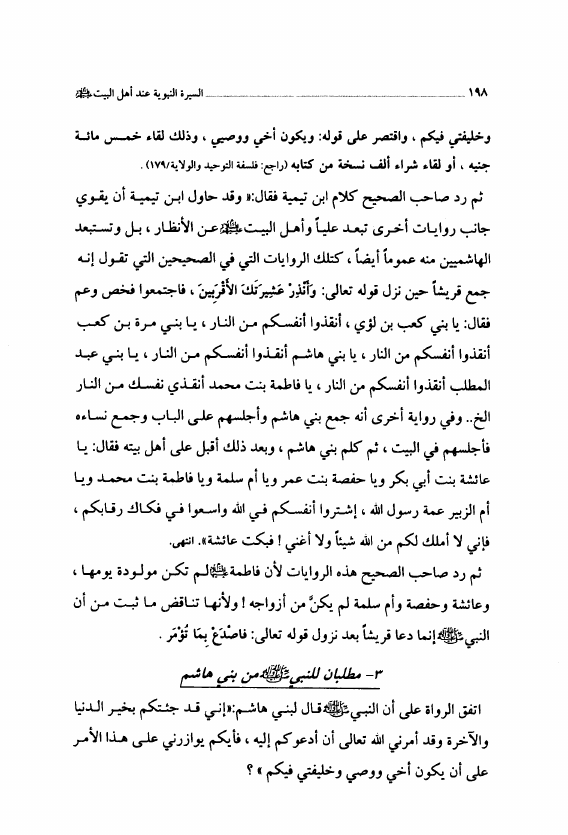 ١٩٨ السيرة النبوية عند أهل البيت
وخليفتي فيكم ، واقتصر على قوله: ويكون أخي ووصيي ، وذلك لقاء خمس مائة
جنيه ، أو لقاء شراء ألف نسخة من كتابه (راجع: فلسفة التوحيد والولاية/١٧٩) .
ثم رد صاحب الصحيح كلام ابن تيمية فقال:« وقد حاول ابن تيمية أن يقوي
جانب روايات أخرى تبعد علياً وأهل البيت عن الأنظار ، بل وتستبعد
الهاشميين منه عموماً أيضاً ، كتلك الروايات التي في الصحيحين التي تقول إنه
جمع قريشاً حين نزل قوله تعالى: وَأَنْذِرْ عَشِيرَتَكَ الأَقْرَبِينَ ، فاجتمعوا فخص وعم
فقال: يا بني كعب بن لؤي ، أنقذوا أنفسكم من النار ، يا بني مرة بن كعب
أنقذوا أنفسكم من النار ، يا بني هاشم أنقذوا أنفسكم من النار ، يا بني عبد
المطلب أنقذوا أنفسكم من النار ، يا فاطمة بنت محمد أنقذي نفسك من النار
الخ.. وفي رواية أخرى أنه جمع بني هاشم وأجلسهم على الباب وجمع نساءه
فأجلسهم في البيت ، ثم كلم بني هاشم ، وبعد ذلك أقبل على أهل بيته فقال: يا
عائشة بنت أبي بكر ويا حفصة بنت عمر ويا أم سلمة ويا فاطمة بنت محمد ويا
أم الزبير عمة رسول الله ، إشتروا أنفسكم في الله واسعوا في فكاك رقابكم ،
فإني لا أملك لكم من الله شيئاً ولا أغني ! فبكت عائشة». انتهى.
ثم رد صاحب الصحيح هذه الروايات لأن فاطمة لم تكن مولودة يومها ،
وعائشة وحفصة وأم سلمة لم يكنَّ من أزواجه ! ولأنها تناقض ما ثبت من أن
النبي إنما دعا قريشاً بعد نزول قوله تعالى: فَاصْدَعْ بِمَا تُؤْمَر .
٣- مطلبان للنبي من بني هاشم
اتفق الرواة على أن النبي قال لبني هاشم:«إني قد جئتكم بخير الدنيا
والآخرة وقد أمرني الله تعالى أن أدعوكم إليه ، فأيكم يوازرني على هذا الأمر
على أن يكون أخي ووصي وخليفتي فيكم » ؟